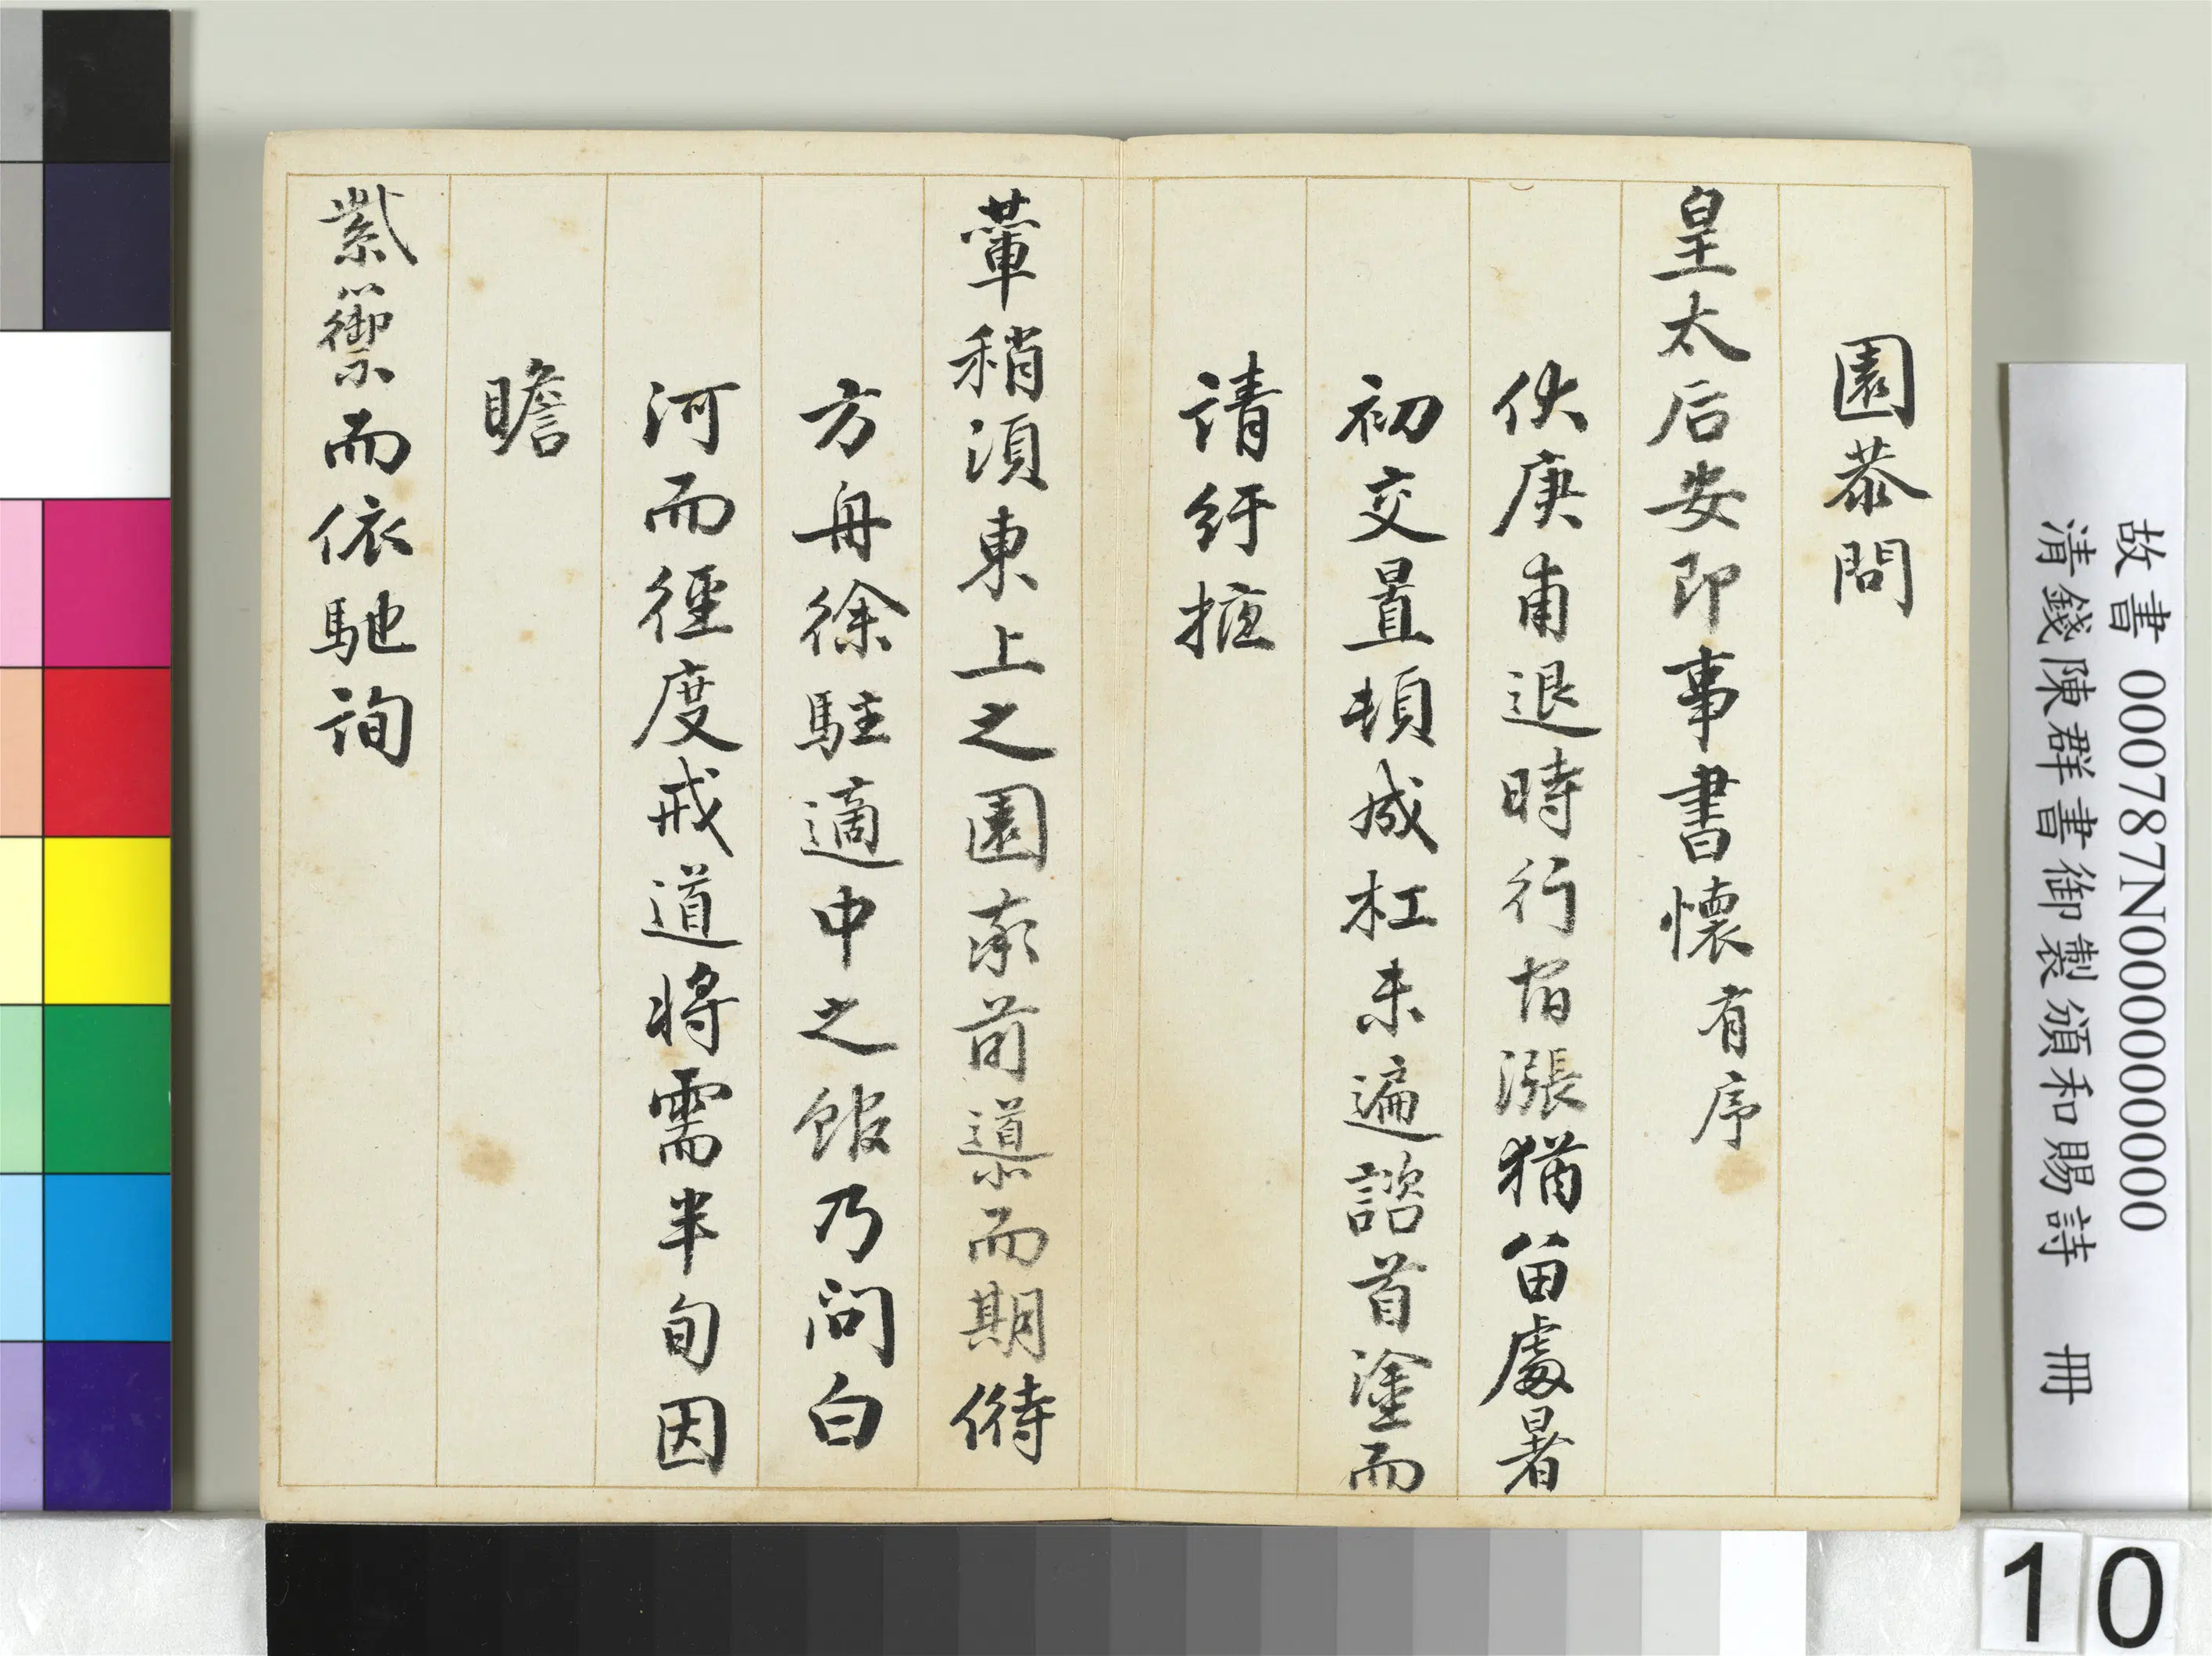 園恭問
皇太后安即事書懷有序
伏庚甫退時行有漲猶留處暑
初交置頓咸杠未遍諮首塗而
請紆掖
輦稍須東上之園索前導而期偫
方舟徐駐適中之館乃問白
河而徑度戒道將需半旬因
瞻
紫籞而依馳詢
故書 000787N000000000
清錢陳群書御製頒和賜詩 冊
10